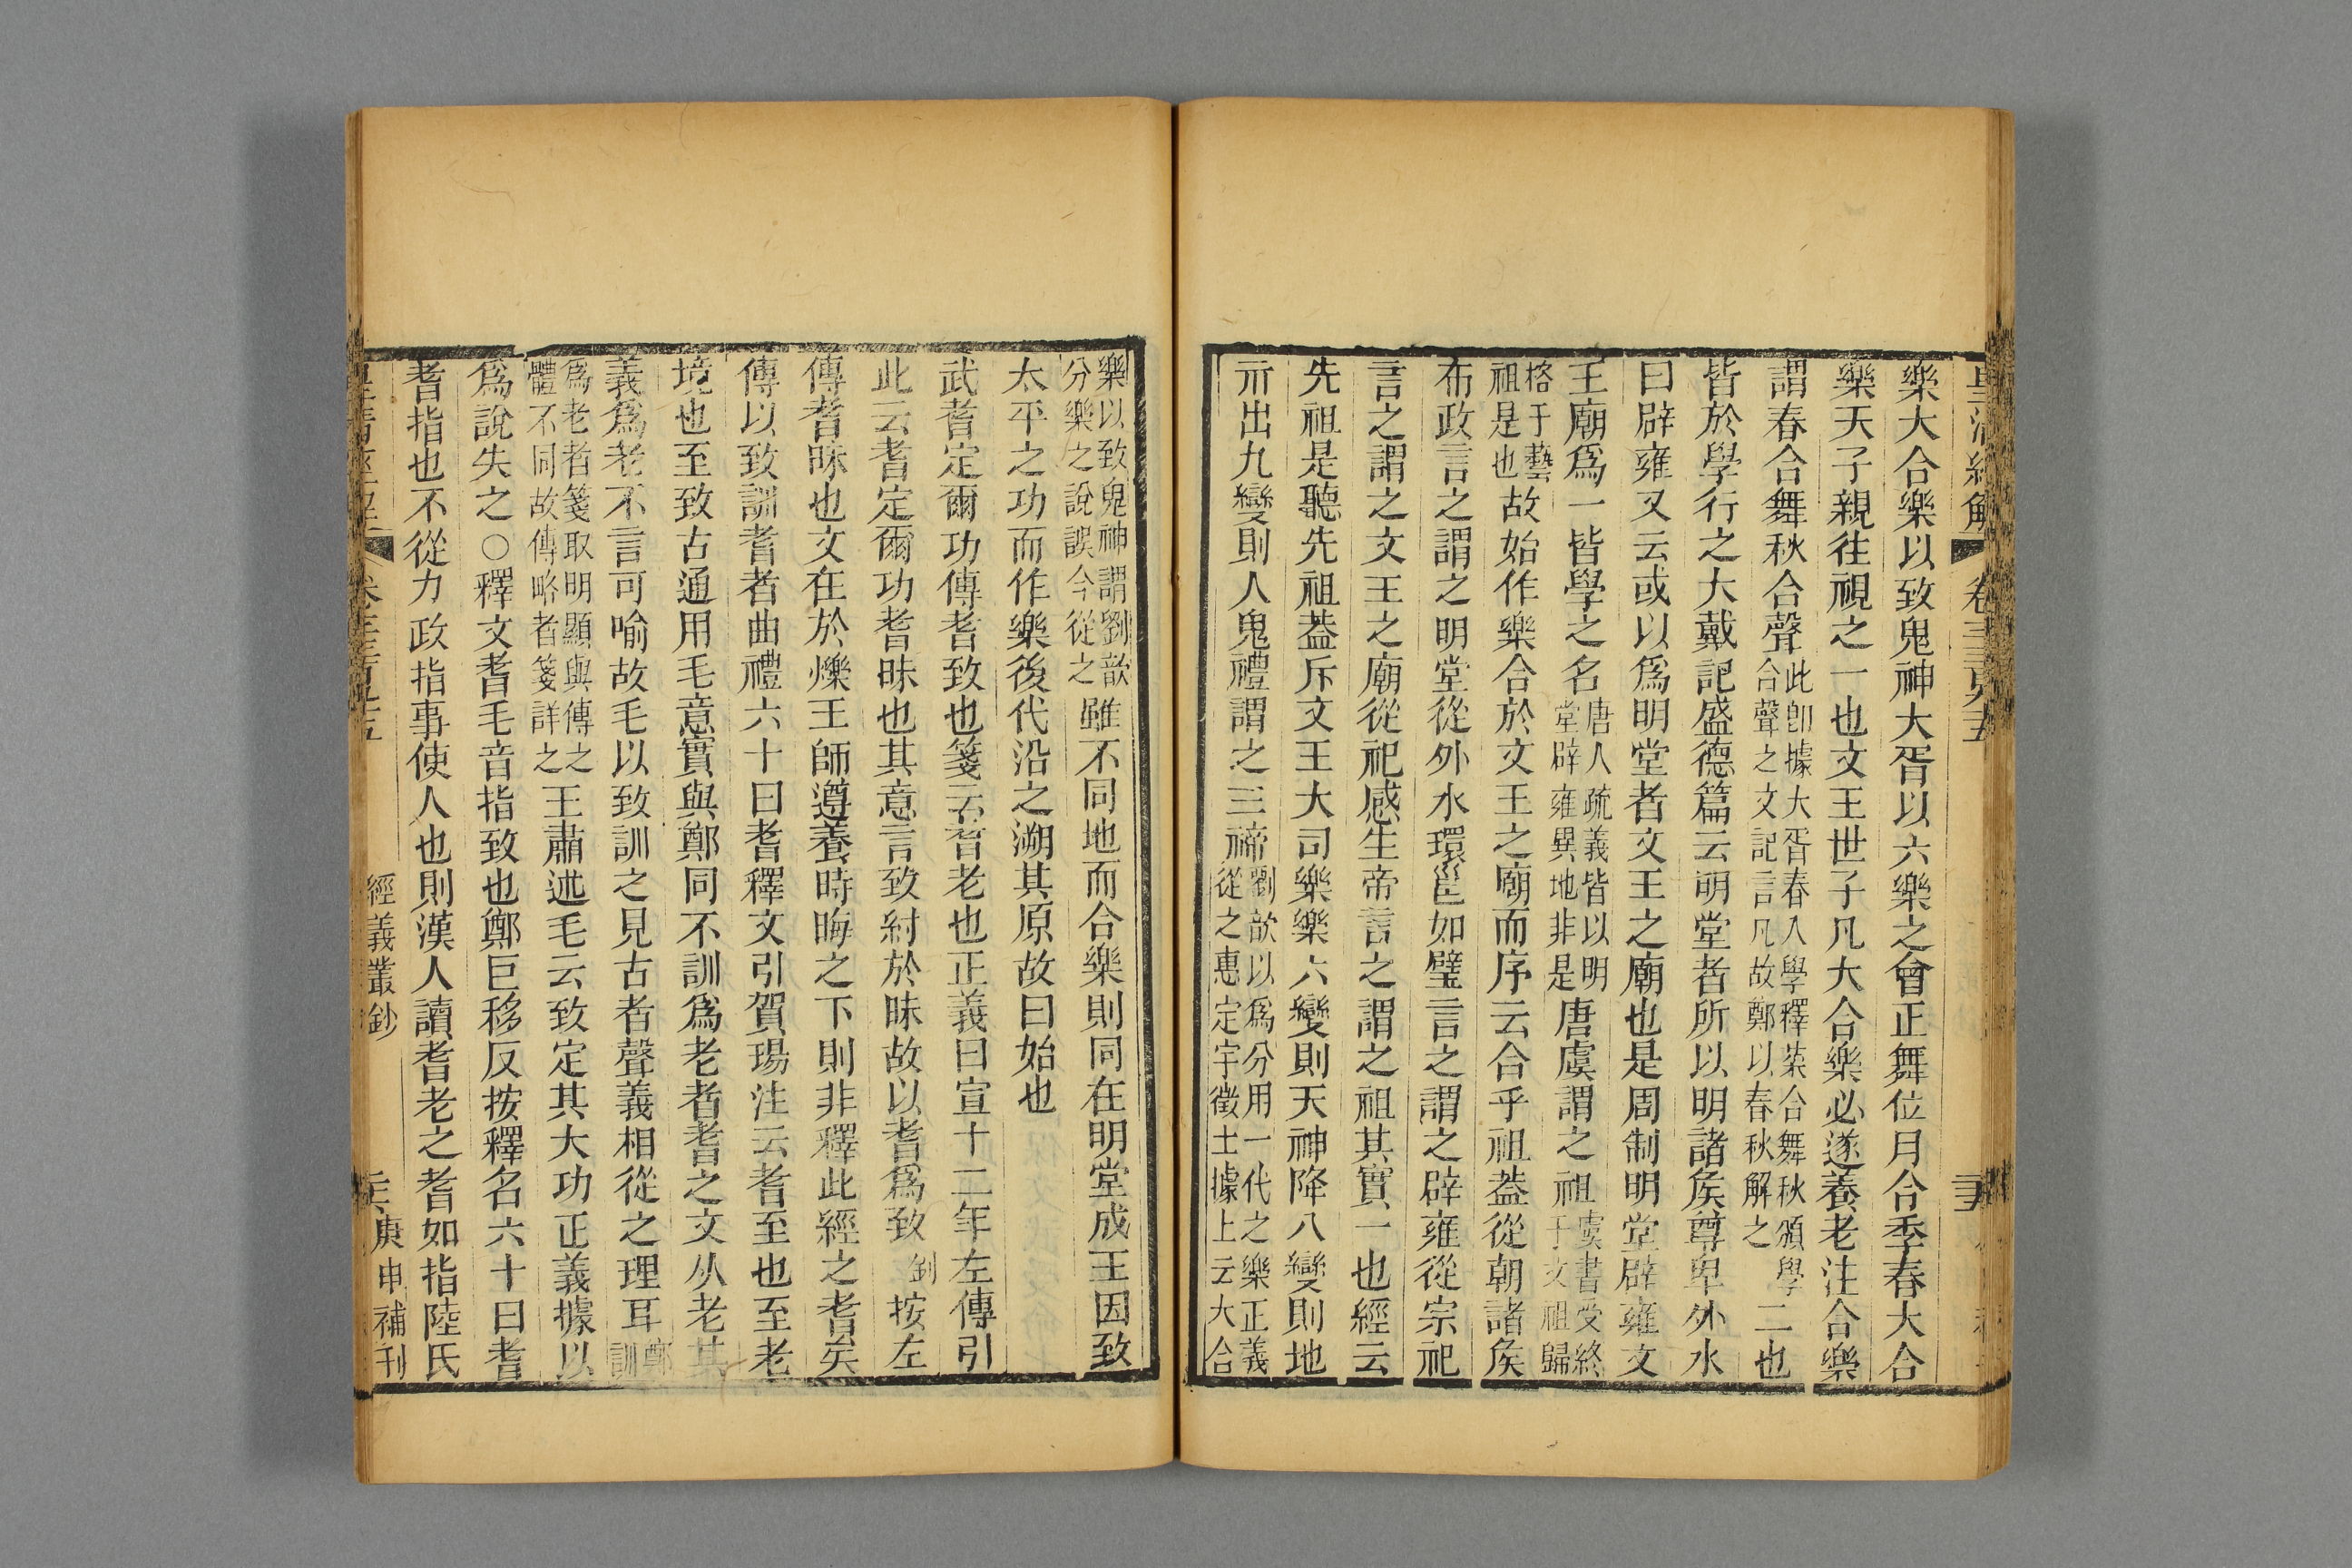 皇清經解 卷
樂大合樂以致鬼神大胥以六樂之會正舞位月令季春大合
樂天子親往視之一也文王世子凡大合樂必遂養老注合樂
謂春合舞秋合聲此卽據大胥春入學釋菜合舞秋頒學合聲之文記言凡故鄭以春秋解之二也
皆於學行之大戴記盛德篇云明堂者所以明諸矦尊卑外水
曰辟雍又云或以爲明堂者文王之廟也是周制明堂辟雍文
王廟爲一皆學之名唐人疏義皆以明堂辟雍異地非是唐虞謂之祖虞書受終于文祖歸
格于藝祖是也故始作樂合於文王之廟而序云合乎祖葢從朝諸矦
布政言之謂之明堂從外水環邕如璧言之謂之辟雍從宗祀
言之謂之文王之廟從祀感生帝言之謂之祖其實一也經云
先祖是聽先祖葢斥文王大司樂樂六變則天神降八變則地
示出九變則人鬼禮謂之三禘劉歆以爲分用一代之樂正義從之惠定宇徵士據上云大合
樂以致鬼神謂劉歆分樂之說誤今從之雖不同地而合樂則同在明堂成王因致
太平之功而作樂後代沿之溯其原故曰始也
武耆定爾功傳耆致也箋云耆老也正義曰宣十二年左傳引
此云耆定爾功耆昧也其意言致紂於昧故以耆爲致劉按左
傳耆昧也文在於爍王師遵養時晦之下則非釋此經之耆矣
傳以致訓耆者曲禮六十曰耆釋文引賀瑒注云耆至也至老
境也至致古通用毛意實與鄭同不訓爲老者耆之文从老其
義爲老不言可喻故毛以致訓之見古者聲義相從之理耳鄭訓
爲老者箋取明顯與傳之體不同故傳略者箋詳之王肅述毛云致定其大功正義據以
爲說失之○釋文耆毛音指致也鄭巨移反按釋名六十曰耆
耆指也不從力政指事使人也則漢人讀耆老之耆如指陸氏
皇清經解 卷 經義叢鈔 庚申補刊